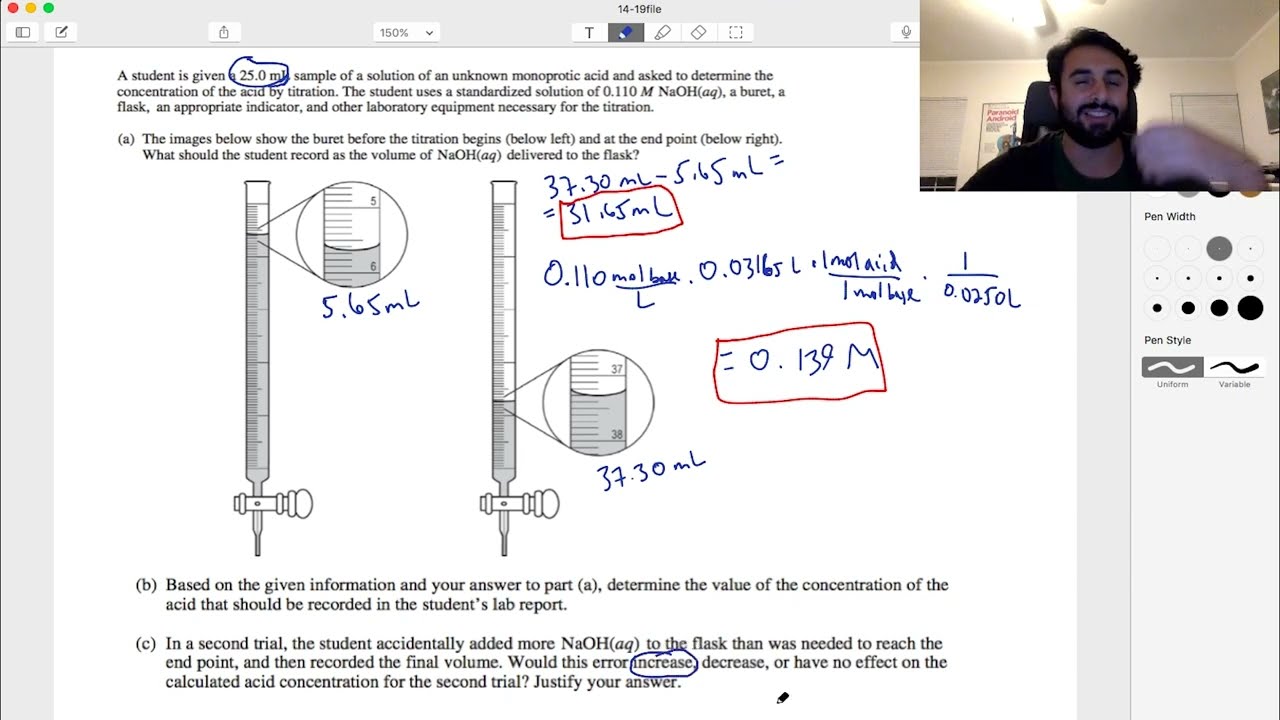 14-19file
150%
T
A student is given a 25.0 mL sample of a solution of an unknown monoprotic acid and asked to determine the
concentration of the acid by titration. The student uses a standardized solution of 0.110 M NaOH(aq), a buret, a
flask, an appropriate indicator, and other laboratory equipment necessary for the titration.
(a) The images below show the buret before the titration begins (below left) and at the end point (below right).
What should the student record as the volume of NaOH(aq) delivered to the flask?
37.30 mL - 5.65 mL =
= 31.65 mL
5
6
5.65 mL
0.110 mol base / L · 0.03165 L · 1 mol acid / 1 mol base · 1 / 0.0250L
= 0.139 M
37
38
37.30 mL
(b) Based on the given information and your answer to part (a), determine the value of the concentration of the
acid that should be recorded in the student's lab report.
(c) In a second trial, the student accidentally added more NaOH(aq) to the flask than was needed to reach the
end point, and then recorded the final volume. Would this error increase, decrease, or have no effect on the
calculated acid concentration for the second trial? Justify your answer.
Paranoid
Android
Pen Width
Pen Style
Uniform Variable